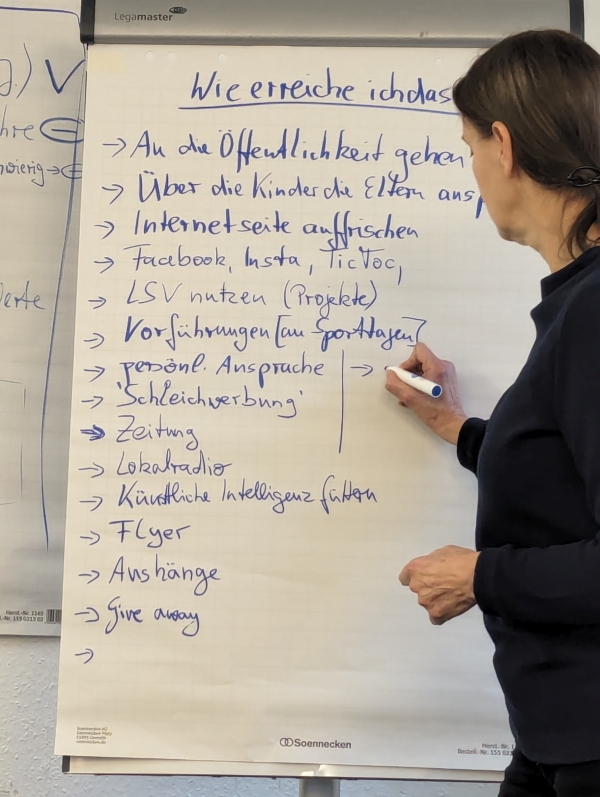 Legamaster
Wie erreiche ich das
→ An die Öffentlichkeit gehen
→ Über die Kinder die Eltern ansp
→ Internetseite auffrischen
→ Facebook, Insta, TicToc,
→ LSV nutzen (Projekte)
→ Vorführungen [an Sporttagen]
→ persönl. Ansprache | →
→ 'Schleichwerbung'
→ Zeitung
→ Lokalradio
→ Künstliche Intelligenz füttern
→ Flyer
→ Aushänge
→ Give away
→
Soennecken